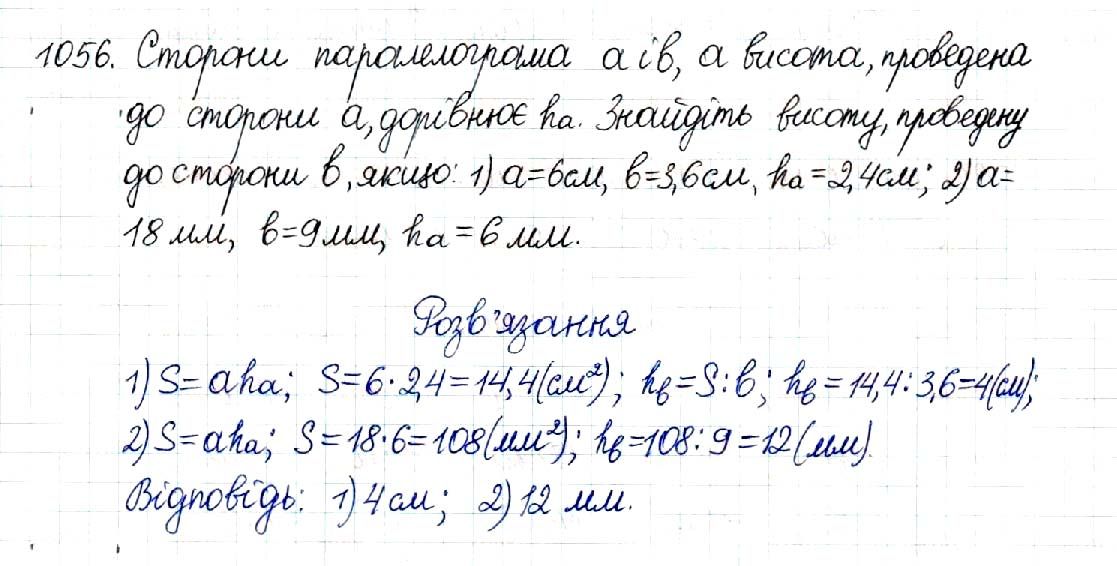 1056. Сторони паралелограма a і b, а висота, проведена
до сторони a, дорівнює hₐ. Знайдіть висоту, проведену
до сторони b, якщо: 1) a=6см, b=3,6см, hₐ=2,4см; 2) a=
18 мм, b=9мм, hₐ=6 мм.
Розв'язання
1) S=ahₐ; S=6·2,4=14,4(см²); h_b=S:b; h_b=14,4:3,6=4(см);
2) S=ahₐ; S=18·6=108(мм²); h_b=108:9=12(мм).
Відповідь: 1) 4см; 2) 12 мм.